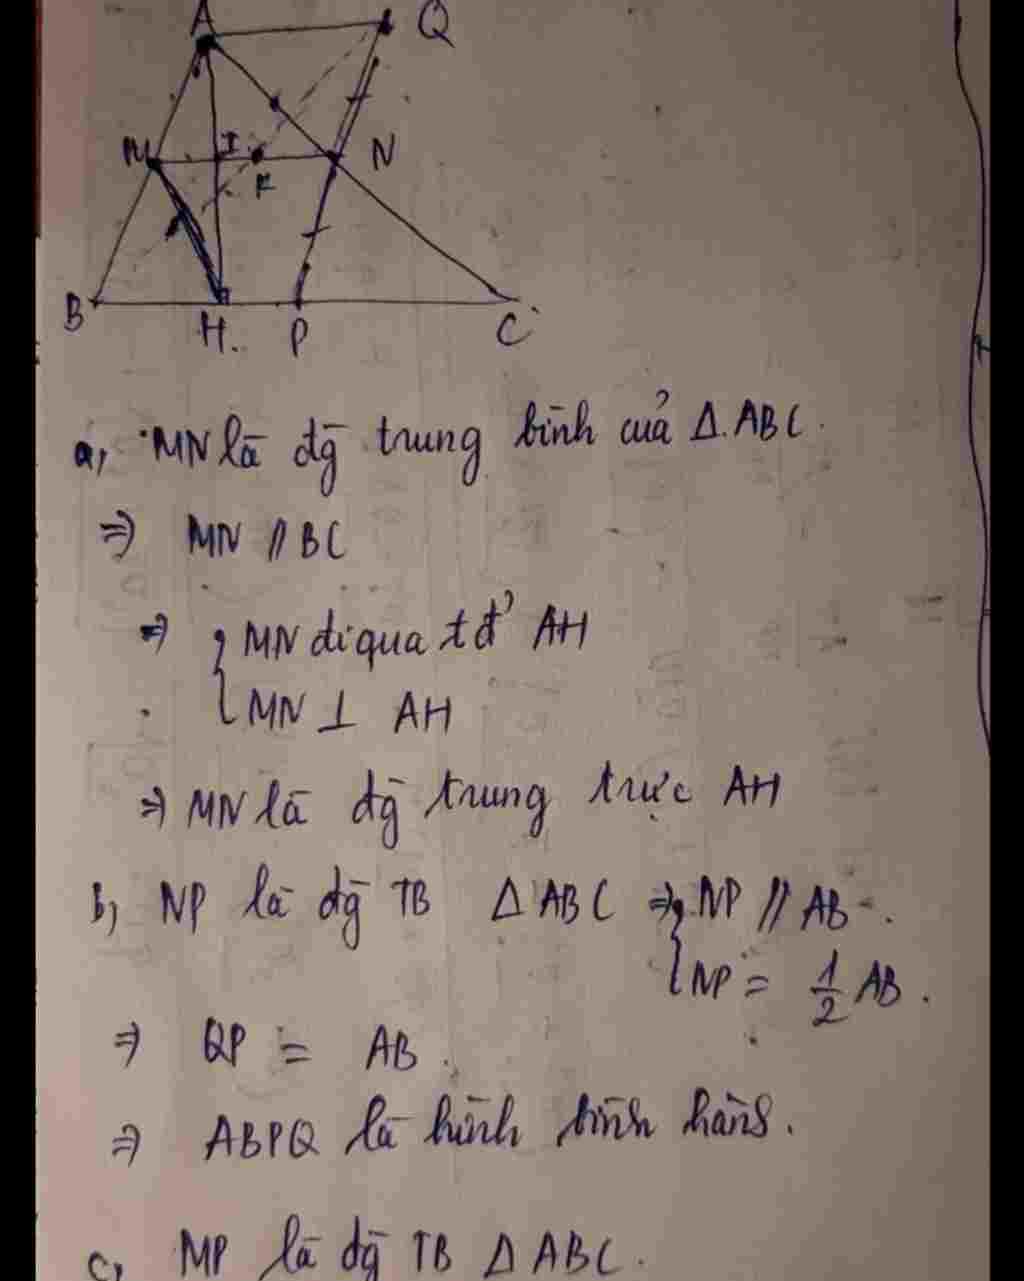 A Q
M I K N
B H P C
a, MN là đg̀ trung bình của Δ ABC.
=> MN // BC
=> { MN đi qua tđ' AH
MN ⊥ AH
=> MN là đg̀ trung trực AH
b, NP là đg̀ TB Δ ABC => { NP // AB.
NP = 1/2 AB.
=> QP = AB.
=> ABPQ là hình bình hành.
c, MP là đg̀ TB Δ ABC.